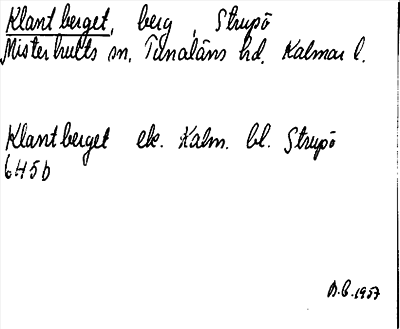 Klantberget, berg, Strupö
Misterhults sn, Tunaläns hd, Kalmar l.
Klantberget ek. Kalm. bl. Strupö
645b
B.C. 1957